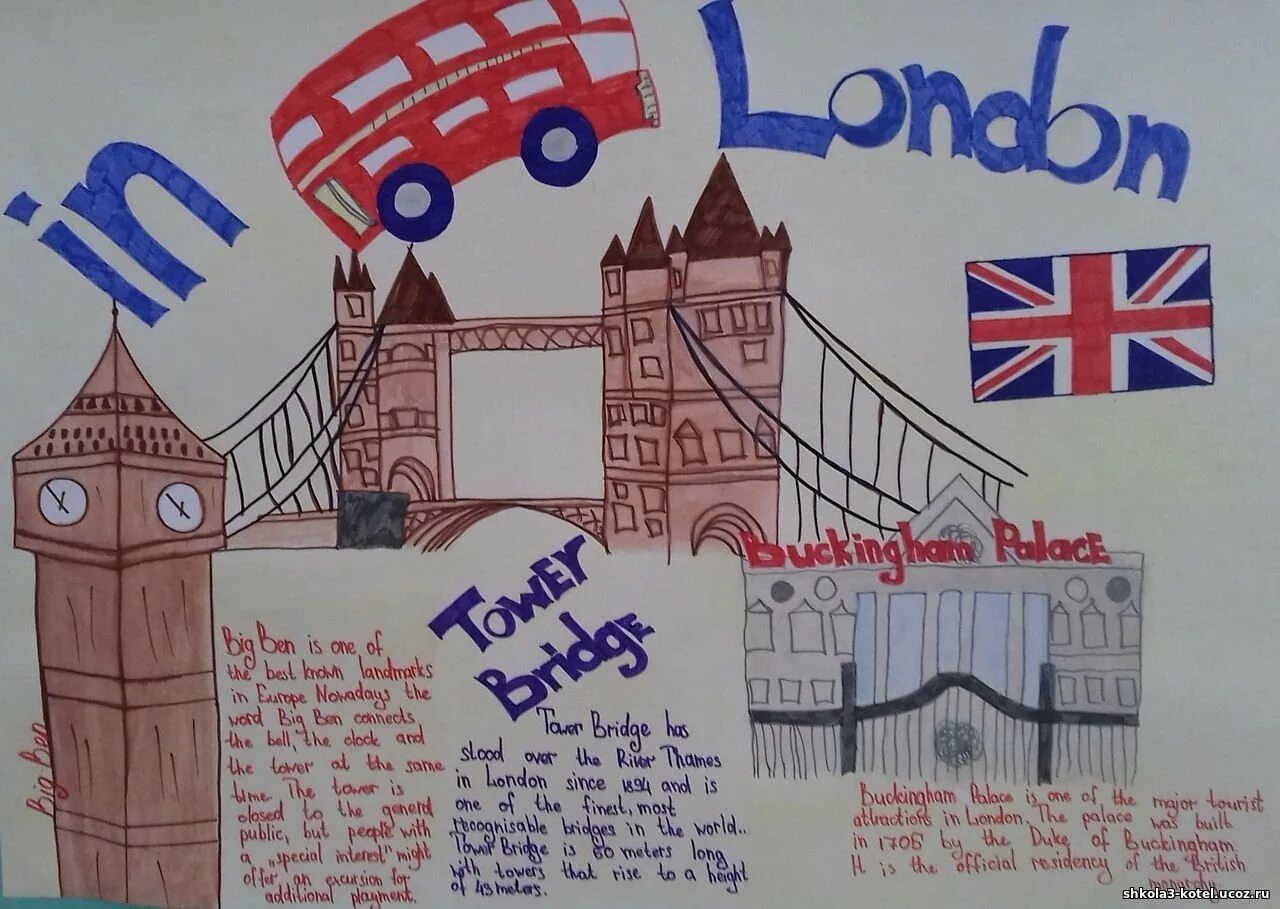 in London
Buckingham Palace
Tower
Bridge
Big Ben
Big Ben is one of
the best known landmarks
in Europe Nowadays the
word Big Ben connects
the bell, the clock and
the tower at the same
time. The tower is
closed to the general
public, but people with
a „special interest" might
offer an excursion for
additional playment.
Tower Bridge has
stood over the River Thames
in London since 1894 and is
one of the finest, most
recognisable bridges in the world..
Tower Bridge is 60 meters long
with towers that rise to a height
of 43 meters.
Buckingham Palace is one of the major tourist
attractions in London. The palace was built
in 1705 by the Duke of Buckingham.
It is the official residency of the British
monarchy.
shkola3-kotel.ucoz.ru